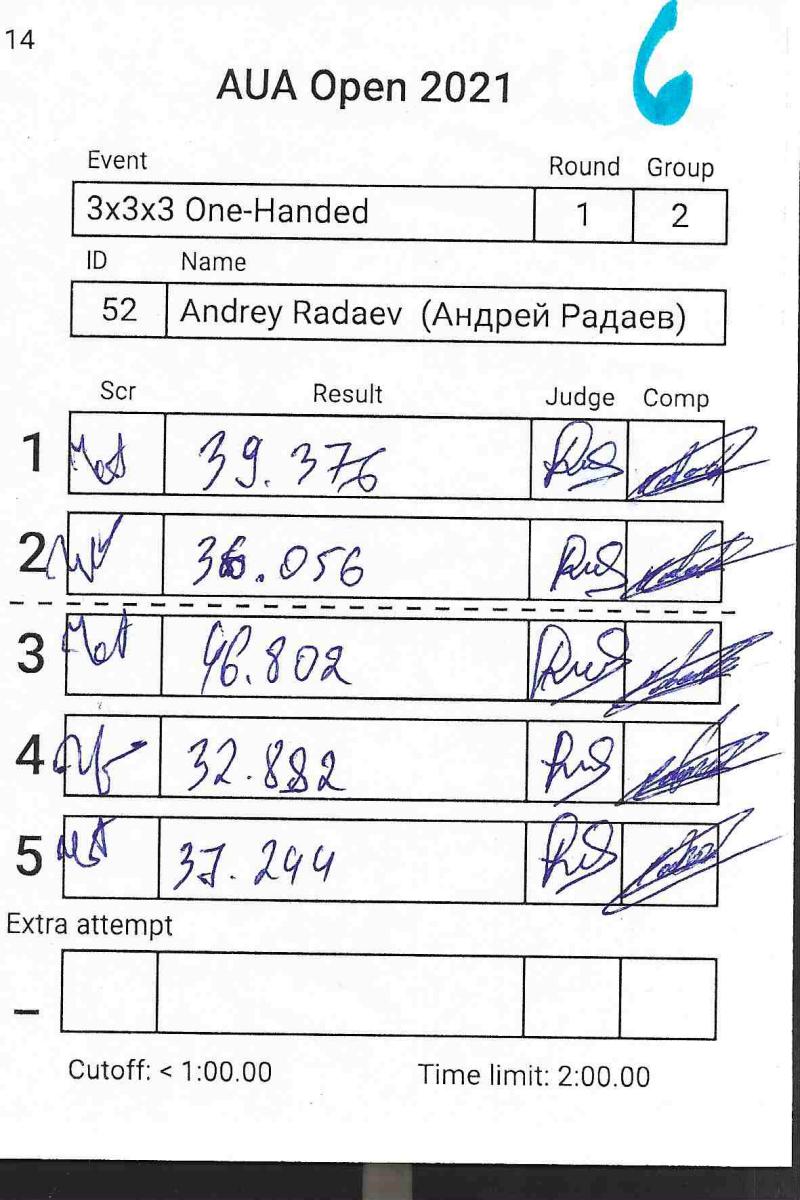 14
6
AUA Open 2021
Event Round Group
3x3x3 One-Handed 1 2
ID Name
52 Andrey Radaev (Андрей Радаев)
Scr Result Judge Comp
1 39.376
2 36.056
3 46.802
4 32.882
5 37.244
Extra attempt
_
Cutoff: < 1:00.00 Time limit: 2:00.00